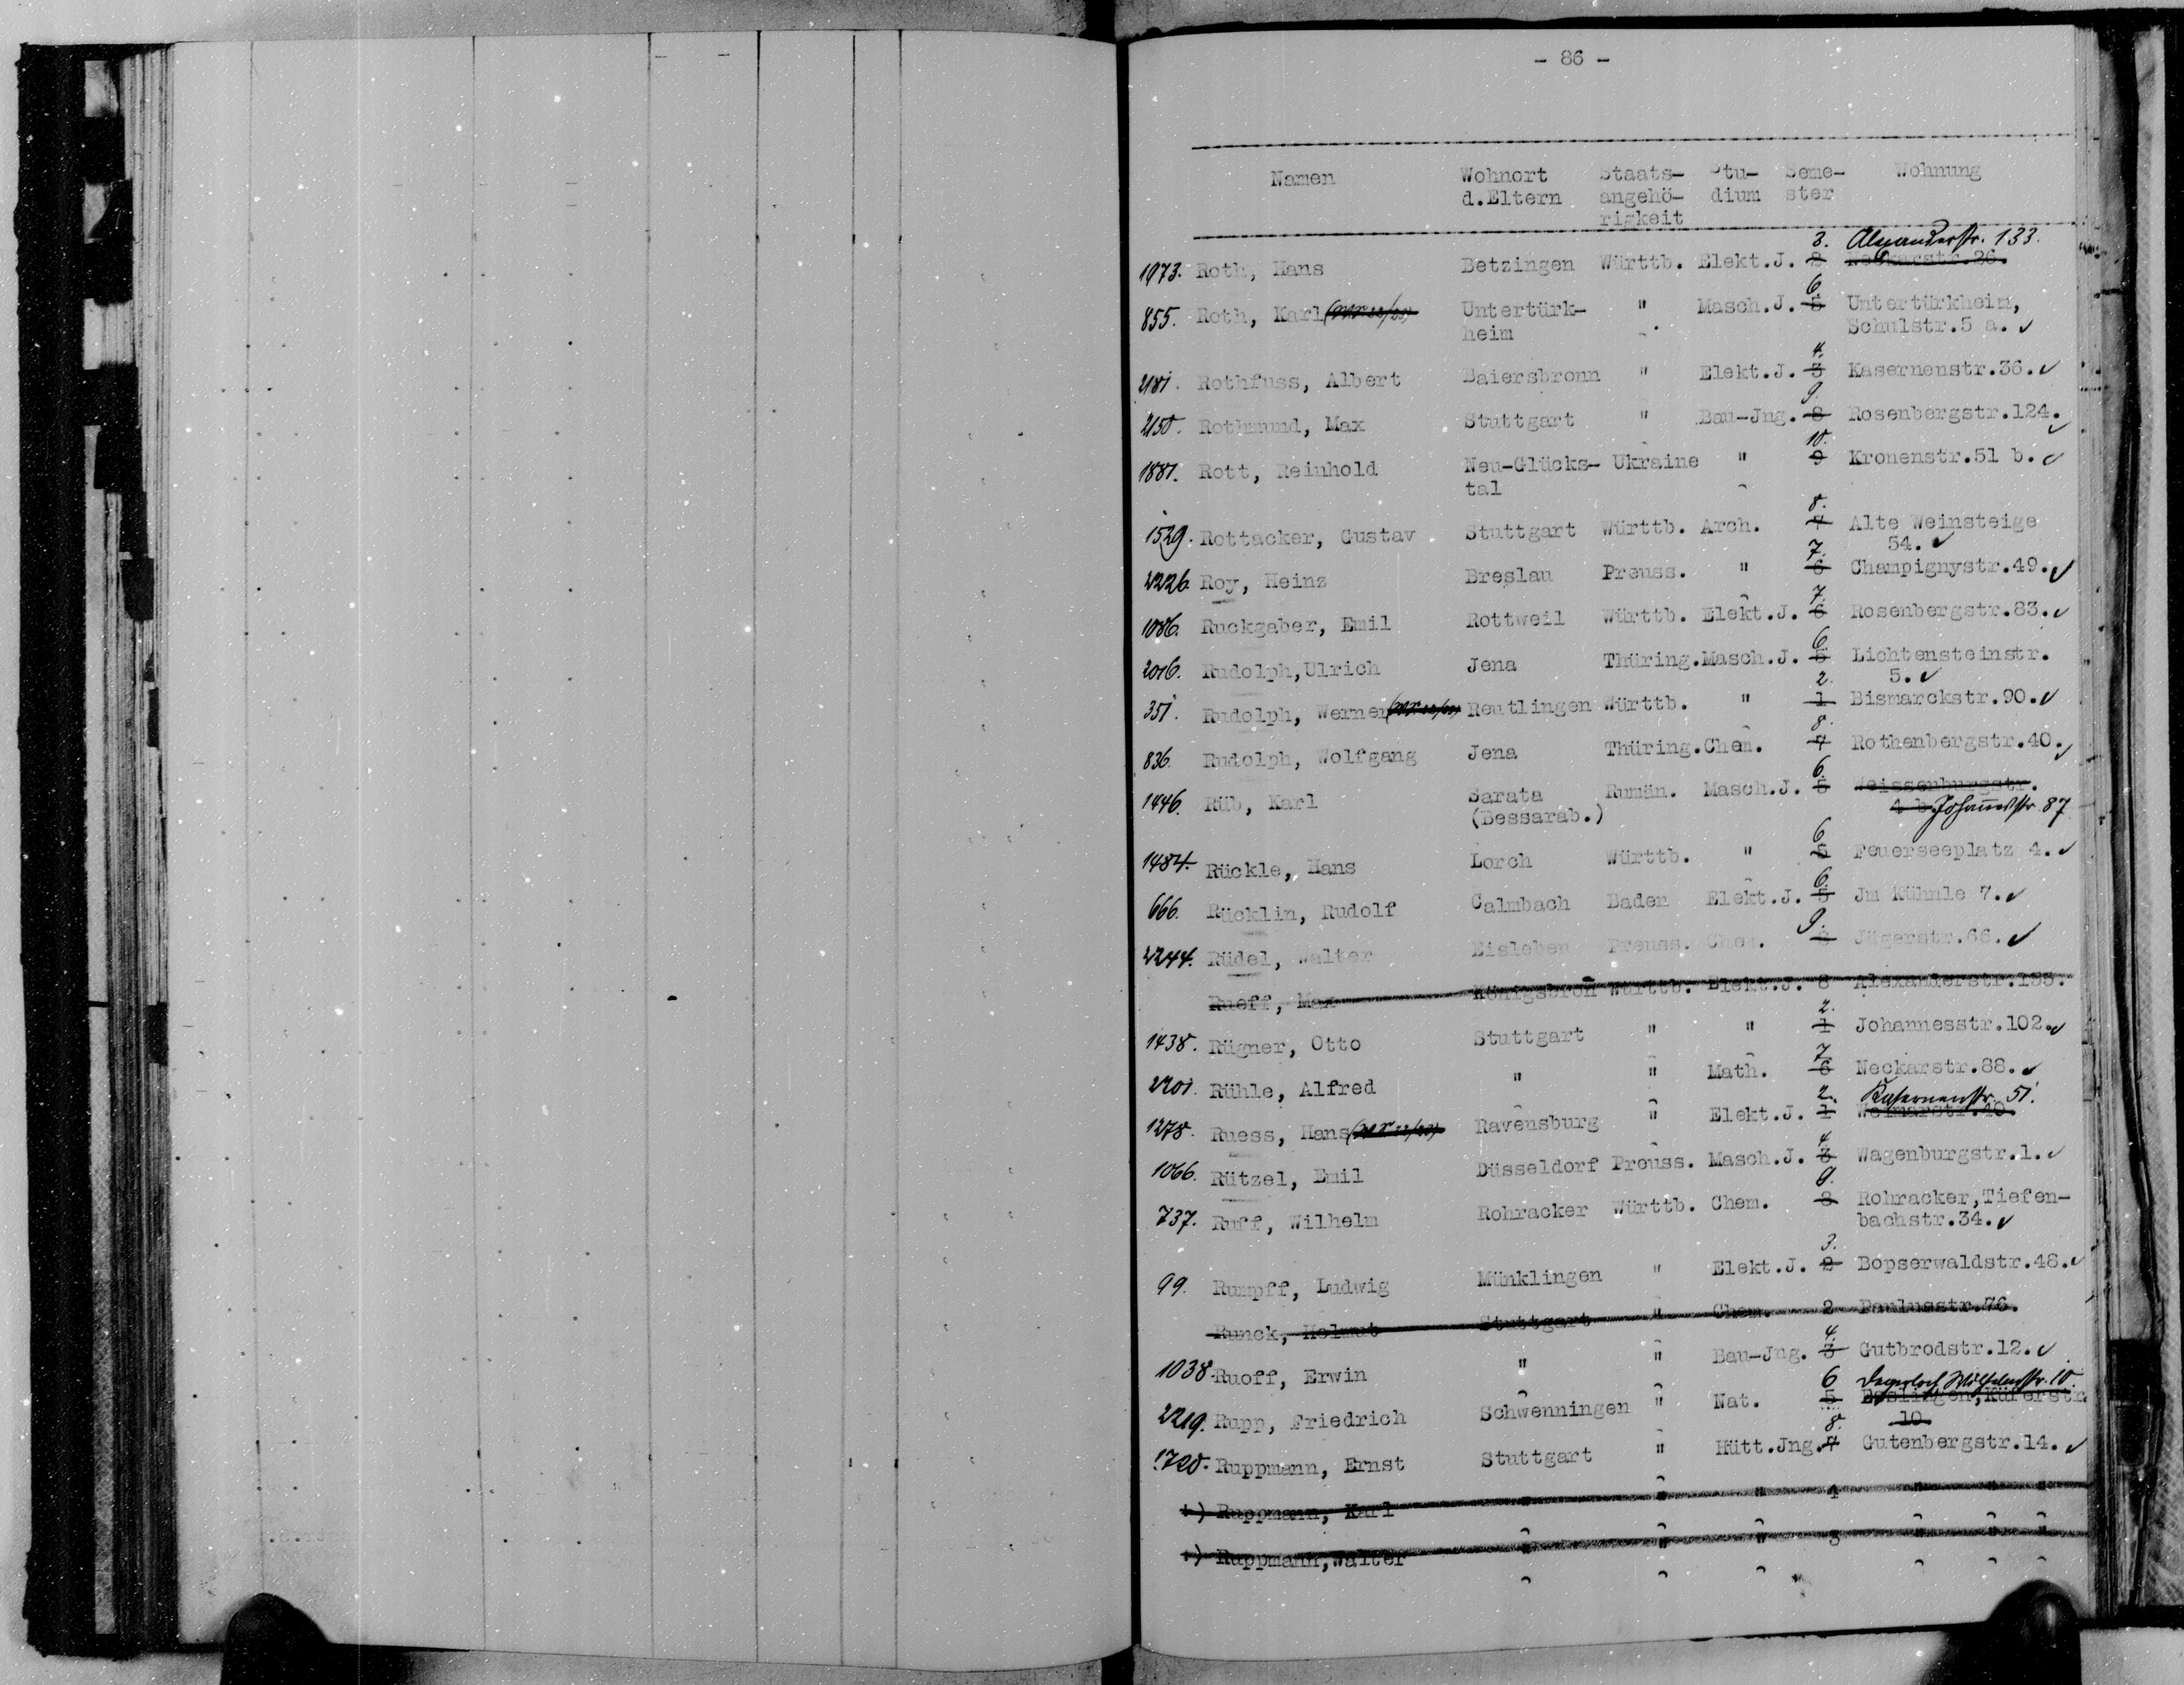 - 86 -
Namen Wohnort Staats- Stu- Seme- Wohnung
d.Eltern angehö- dium ster
rigkeit
3. Alexanderstr. 133.
1073. Roth, Hans Betzingen Württb. Elekt.J. 2 Neckarstr.26.
6.
855. Roth, Karl (W.S. 22/23) Untertürk- " Masch.J. 5 Untertürkheim,
heim Schulstr.5 a.
4.
2181. Rothfuss, Albert Baiersbronn " Elekt.J. 3 Kasernenstr.36.
9.
2150. Rothmund, Max Stuttgart " Bau-Jng. 8 Rosenbergstr.124.
10.
1881. Rott, Reinhold Neu-Glücks- Ukraine " 9 Kronenstr.51 b.
tal
8.
1529. Rottacker, Gustav Stuttgart Württb. Arch. 7 Alte Weinsteige
54.
7.
2226. Roy, Heinz Breslau Preuss. " 6 Champignystr.49.
7.
1086. Ruckgaber, Emil Rottweil Württb. Elekt.J. 6 Rosenbergstr.83.
6.
2016. Rudolph,Ulrich Jena Thüring. Masch.J. 5 Lichtensteinstr.
5.
2.
351. Rudolph, Werner (W.S. 22/23) Reutlingen Württb. " 1 Bismarckstr.90.
8.
836. Rudolph, Wolfgang Jena Thüring. Chem. 7 Rothenbergstr.40.
6.
1446. Rüb, Karl Sarata Rumän. Masch.J. 5 Weissenburgstr.
(Bessarab.) 4 b Johannesstr. 87
6
1484. Rückle, Hans Lorch Württb. " 5 Feuerseeplatz 4.
6.
666. Rücklin, Rudolf Calmbach Baden Elekt.J. 5 Jm Kühnle 7.
9.
2244. Rüdel, Walter Eisleben Preuss. Chem. 8 Jägerstr.66.
Rueff, Max Königsbron Württb. Elekt.J. 8 Alexanderstr.155.
2.
1438. Rügner, Otto Stuttgart " " 1 Johannesstr.102.
7
2201. Rühle, Alfred " " Math. 6 Neckarstr.88.
2. Kasernenstr. 51.
1278. Ruess, Hans (W.S. 22/23) Ravensburg " Elekt.J. 1 Weimarstr.40.
4.
1066. Rützel, Emil Düsseldorf Preuss. Masch.J. 3 Wagenburgstr.1.
9.
737. Ruff, Wilhelm Rohracker Württb. Chem. 8 Rohracker,Tiefen-
bachstr.34.
3.
99. Rumpff, Ludwig Münklingen " Elekt.J. 2 Bopserwaldstr.48.
Runck, Helmut Stuttgart " Chem. 2 Paulusstr.76.
4.
1038. Ruoff, Erwin " " Bau-Jng. 3 Gutbrodstr.12.
6 Degerloch, Wilhelmstr. 10.
2219. Rupp, Friedrich Schwenningen " Nat. 5 Esslingen,Küferstr.
10.
8.
1720. Ruppmann, Ernst Stuttgart " Hütt.Jng. 7 Gutenbergstr.14.
+) Ruppmann, Karl " " " 4 " " "
+) Ruppmann,Walter " " " 3 " " "